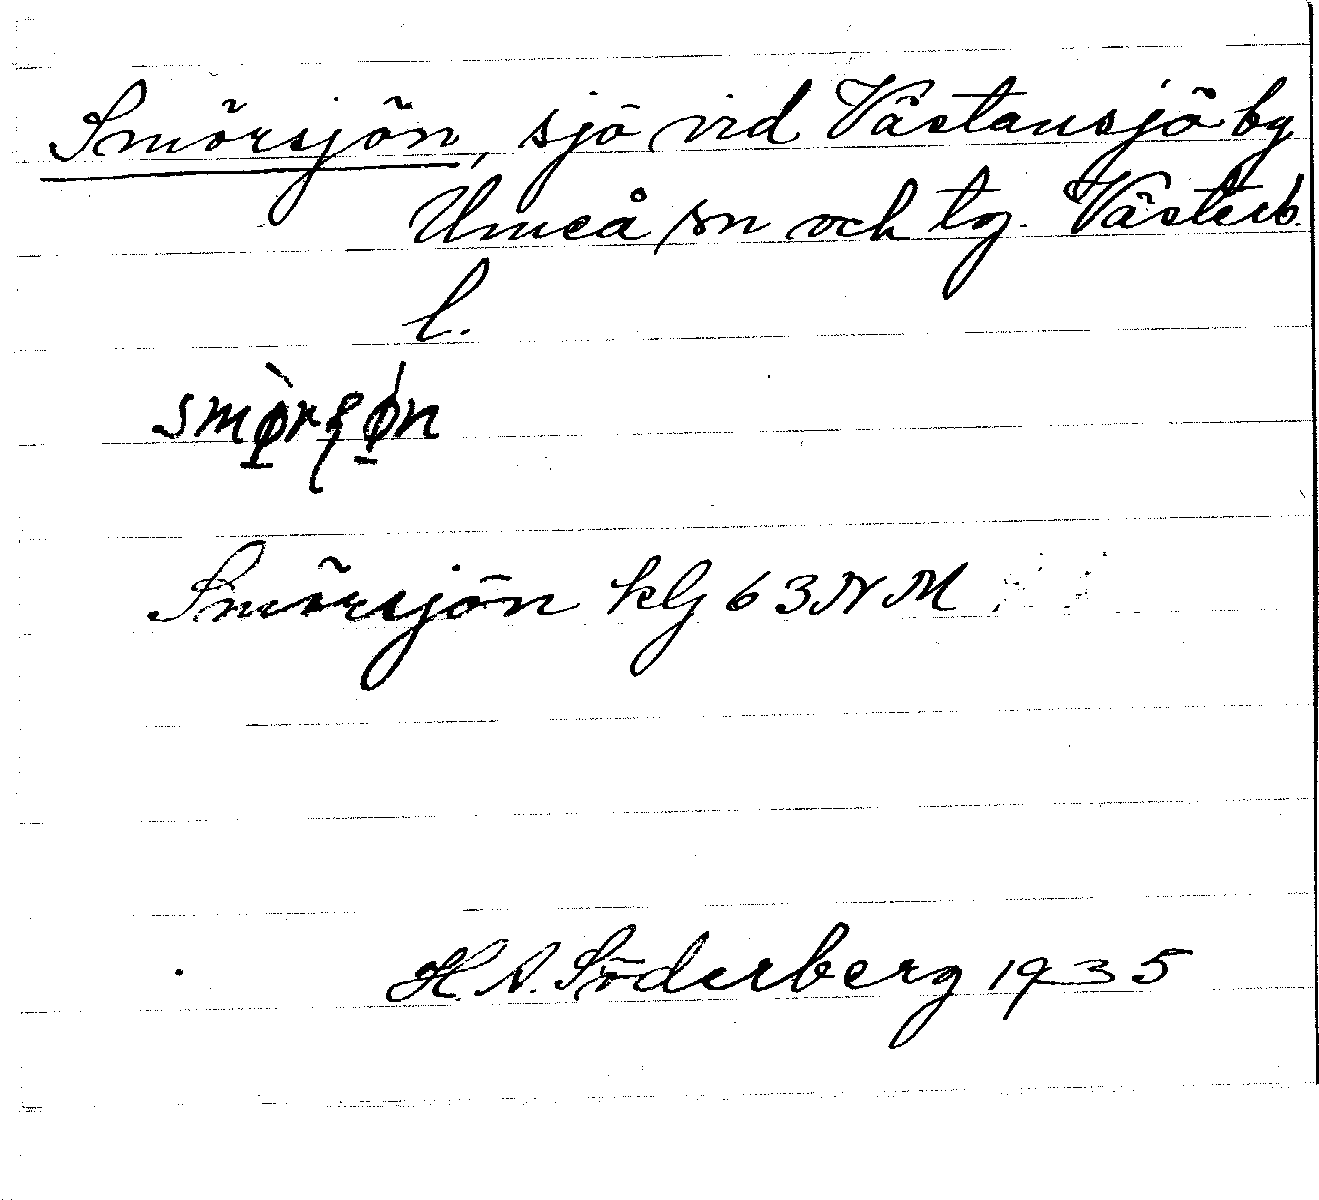 Smörsjön, sjö vid Västansjö by
Umeå sn och tg. Västerb.
l.
Smörsjön klj 63 NM
H. A. Söderberg 1935